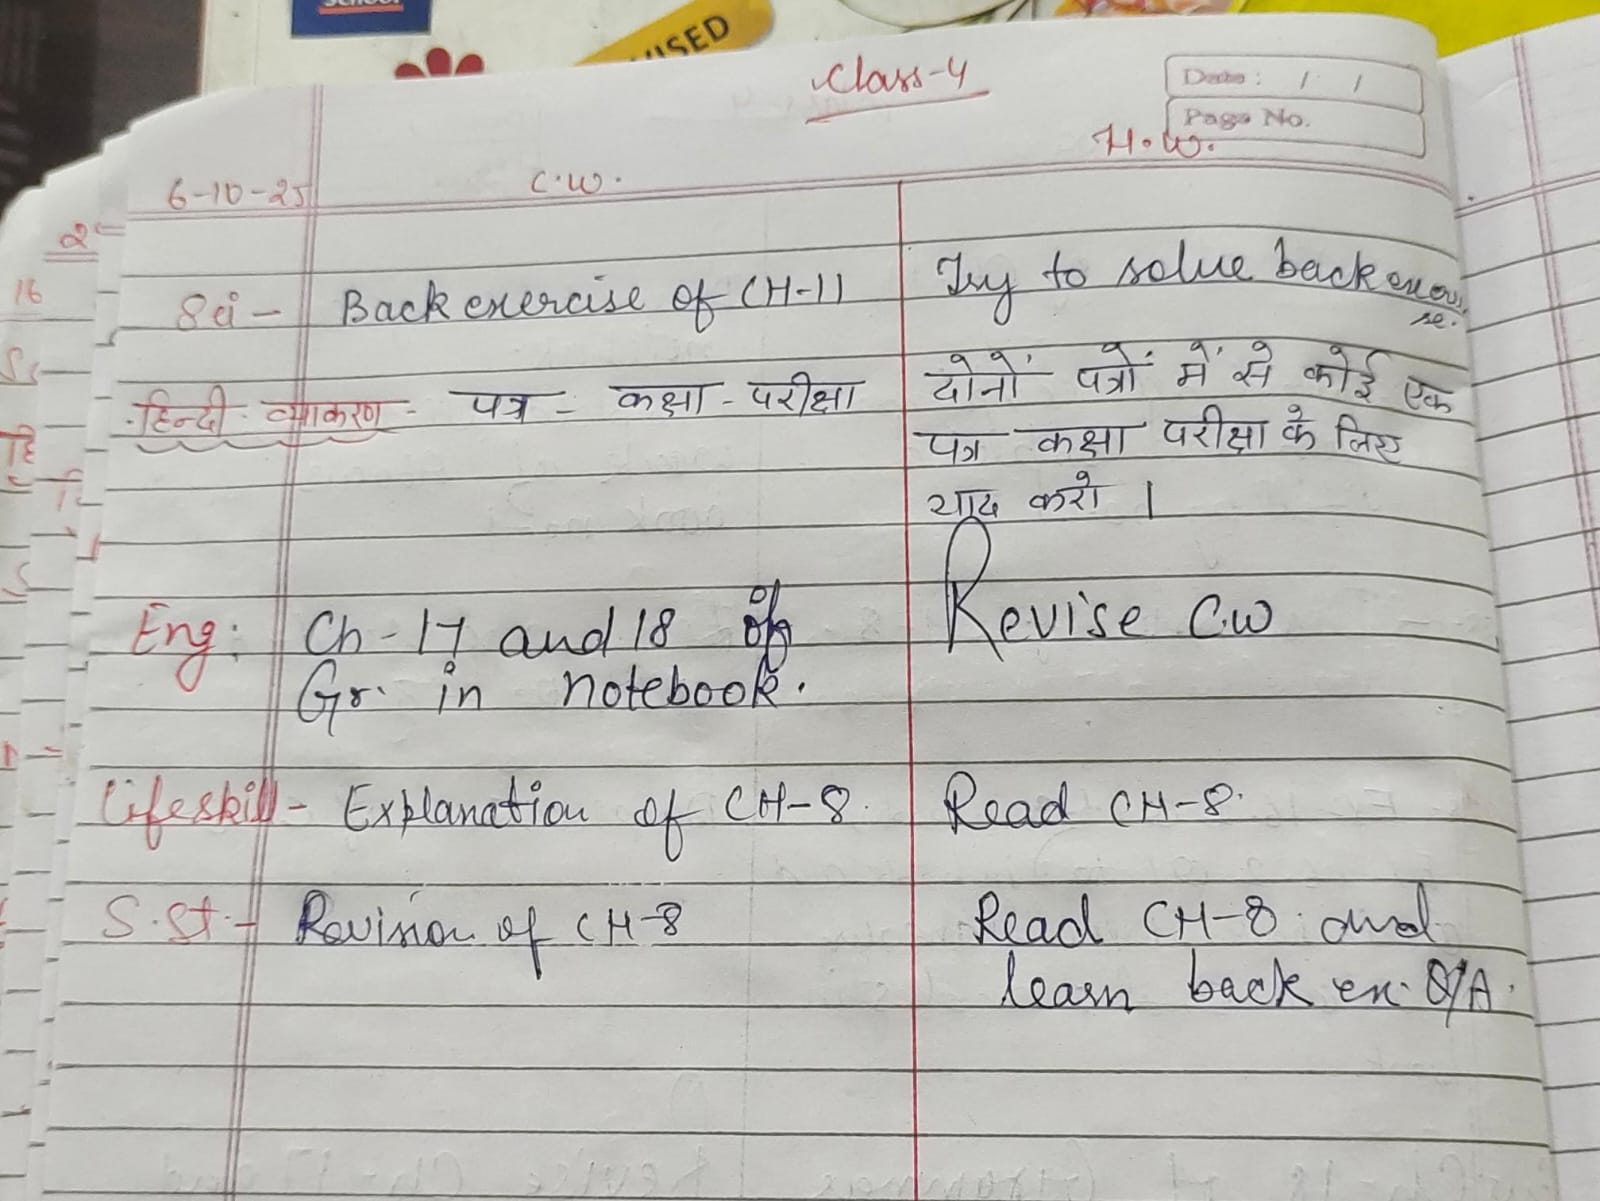 School
USED
Class-4
Date : / /
Page No.
H.W.
6-10-25 C.W.
Sci - Back exercise of CH-11
Try to solve back exerci
se.
हिन्दी व्याकरण - पत्र - कक्षा - परीक्षा
दोनों पत्रों में से कोई एक
पत्र कक्षा परीक्षा के लिए
याद करो ।
Eng: Ch-17 and 18 of
Gr. in notebook.
Revise C.W
Lifeskill - Explanation of CH-8.
Read CH-8.
S.St. - Revision of CH-8
Read CH-8 and
learn back ex. Q/A.